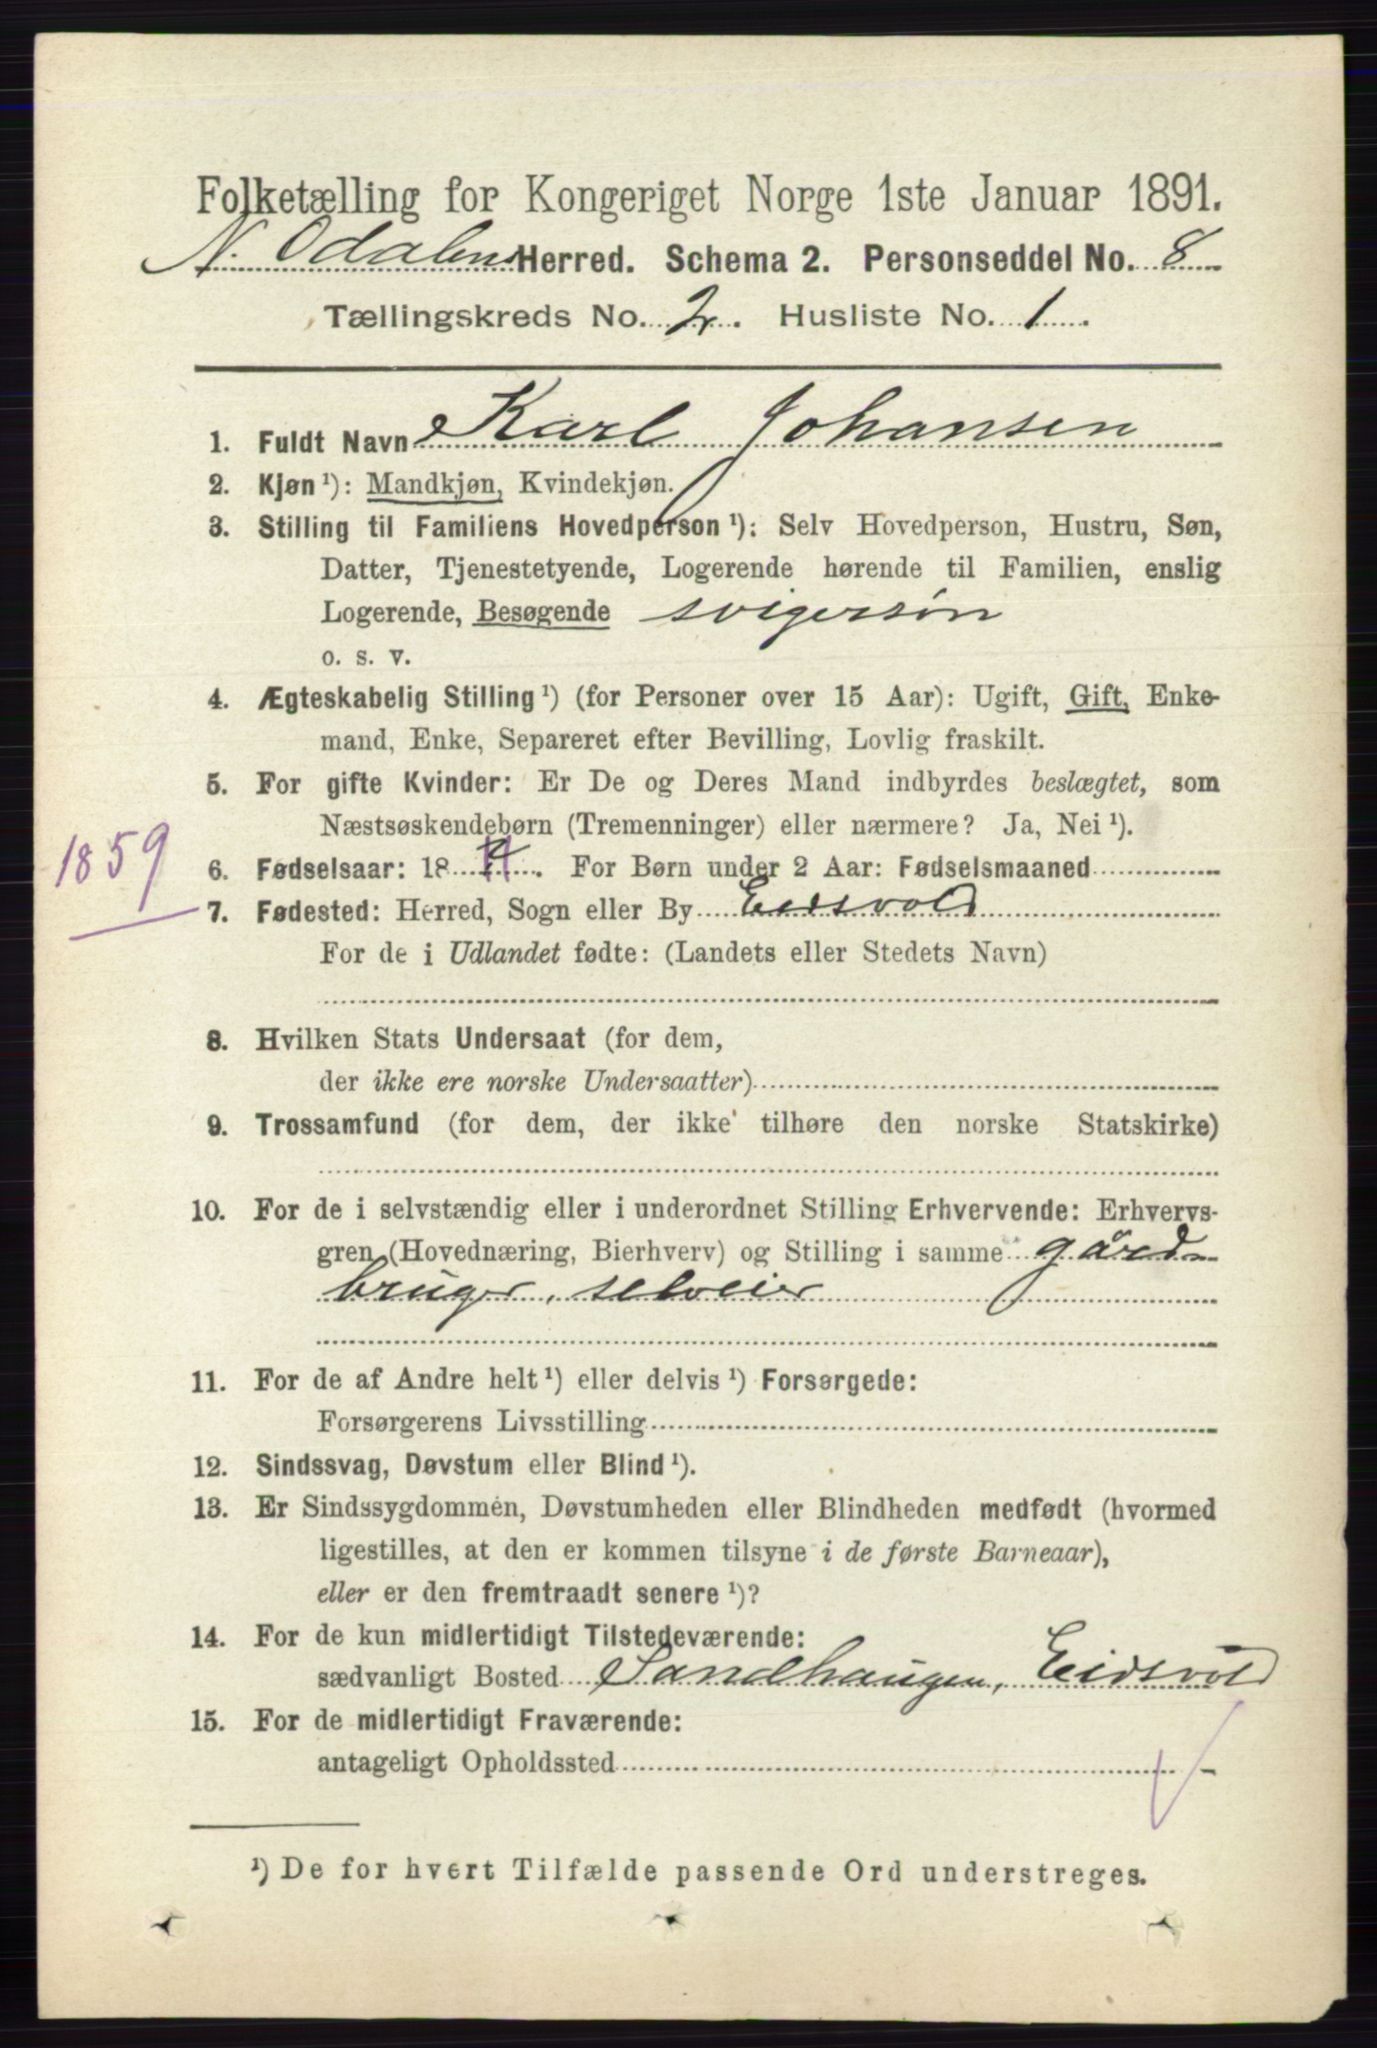 Folketælling for Kongeriget Norge 1ste Januar 1891.
N. Odalens Herred. Schema 2. Personseddel No. 8
Tællingskreds No. 2. Husliste No. 1.
1. Fuldt Navn Karl Johansen
2. Kjøn ¹): Mandkjøn, Kvindekjøn.
3. Stilling til Familiens Hovedperson ¹): Selv Hovedperson, Hustru, Søn,
Datter, Tjenestetyende, Logerende hørende til Familien, enslig
Logerende, Besøgende svigersøn
o. s. v.
4. Ægteskabelig Stilling ¹) (for Personer over 15 Aar): Ugift, Gift, Enke-
mand, Enke, Separeret efter Bevilling, Lovlig fraskilt.
5. For gifte Kvinder: Er De og Deres Mand indbyrdes beslægtet, som
Næstsøskendebørn (Tremenninger) eller nærmere? Ja, Nei ¹).
1859
6. Fødselsaar: 18 . For Børn under 2 Aar: Fødselsmaaned
7. Fødested: Herred, Sogn eller By Eidsvold
For de i Udlandet fødte: (Landets eller Stedets Navn)
8. Hvilken Stats Undersaat (for dem,
der ikke ere norske Undersaatter)
9. Trossamfund (for dem, der ikke tilhøre den norske Statskirke)
10. For de i selvstændig eller i underordnet Stilling Erhvervende: Erhvervs-
gren (Hovednæring, Bierhverv) og Stilling i samme gård-
bruger, selveier
11. For de af Andre helt ¹) eller delvis ¹) Forsørgede:
Forsørgerens Livsstilling
12. Sindssvag, Døvstum eller Blind ¹).
13. Er Sindssygdommen, Døvstumheden eller Blindheden medfødt (hvormed
ligestilles, at den er kommen tilsyne i de første Barneaar),
eller er den fremtraadt senere ¹)?
14. For de kun midlertidigt Tilstedeværende:
sædvanligt Bosted Sandhaugen, Eidsvold
15. For de midlertidigt Fraværende:
antageligt Opholdssted
¹) De for hvert Tilfælde passende Ord understreges.